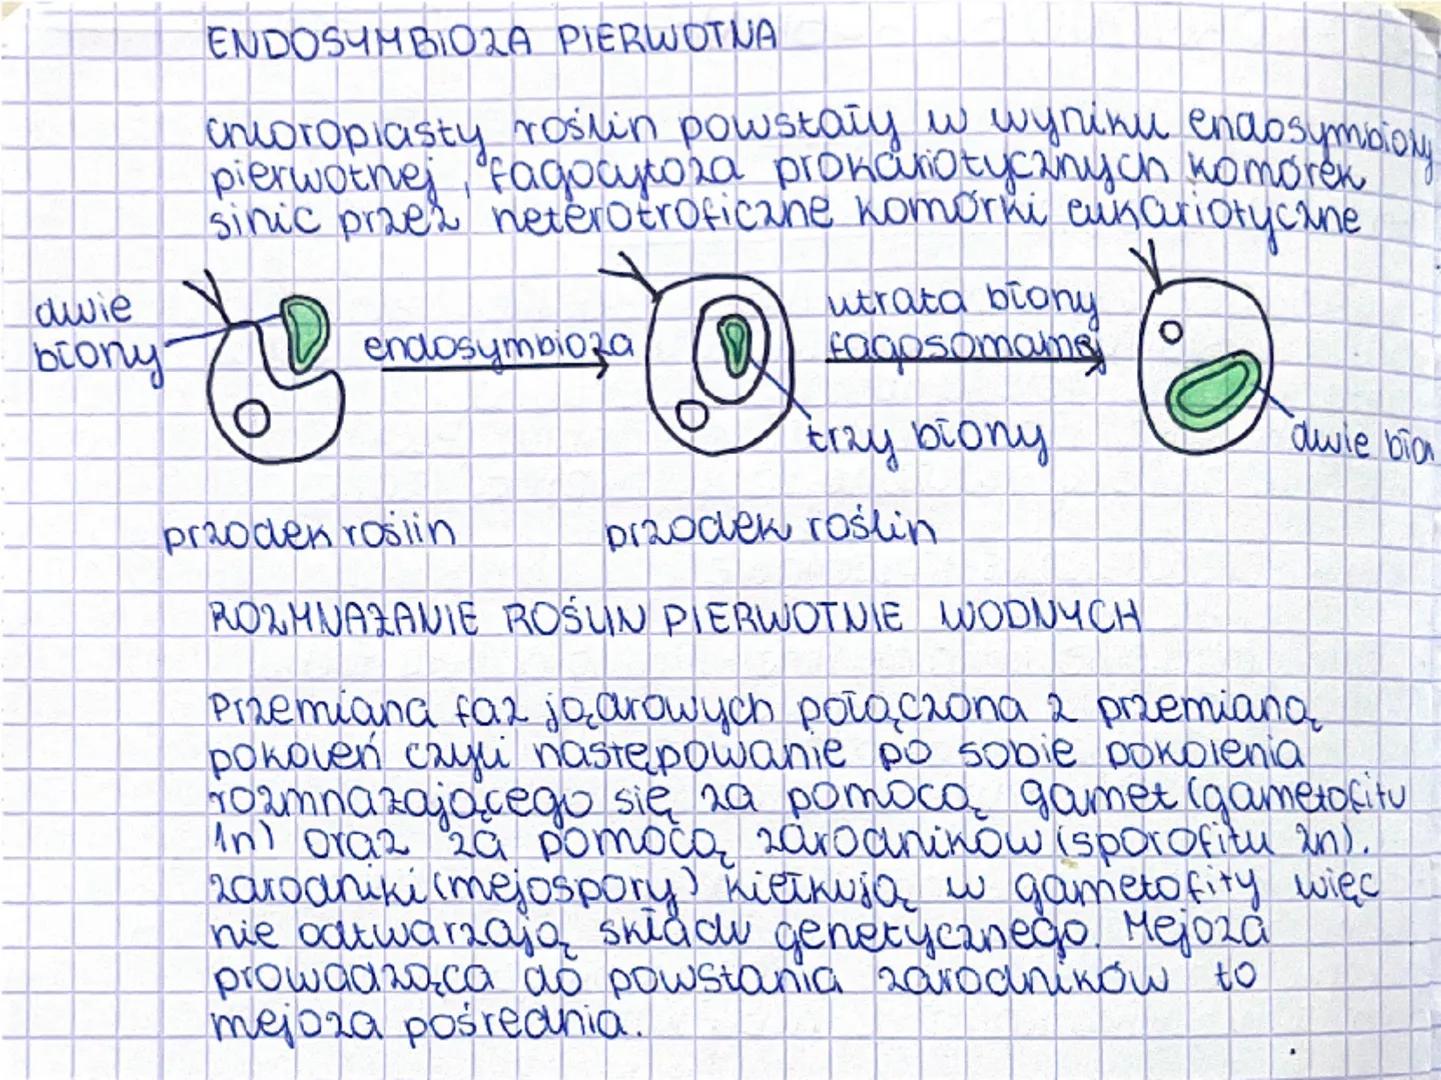 ENDOSYMBIOZA PIERWOTNA
chloroplasty roślin powstały w wyniku endosymbiozy
pierwotnej, fagocytoza prokariotycznych komórek
sinic przez heterotroficzne komórki eukariotyczne
dwie
błony
endosymbioza
utrata błony
fagosomamej
trzy błony
dwie bło
przodek roślin
przodek roślin
ROZMNAŻANIE ROŚLIN PIERWOTNIE WODNYCH
Przemiana faz jądrowych połączona z przemianą
pokoleń czyli następowanie po sobie pokolenia
rozmnażającego się za pomocą gamet (gametofitu
1n) oraz za pomocą zarodników (sporofitu 2n).
zarodniki (mejospory) kiełkują w gametofity więc
nie odtwarzają składu genetycznego. Mejoza
prowadząca do powstania zarodników to
mejoza pośrednia.